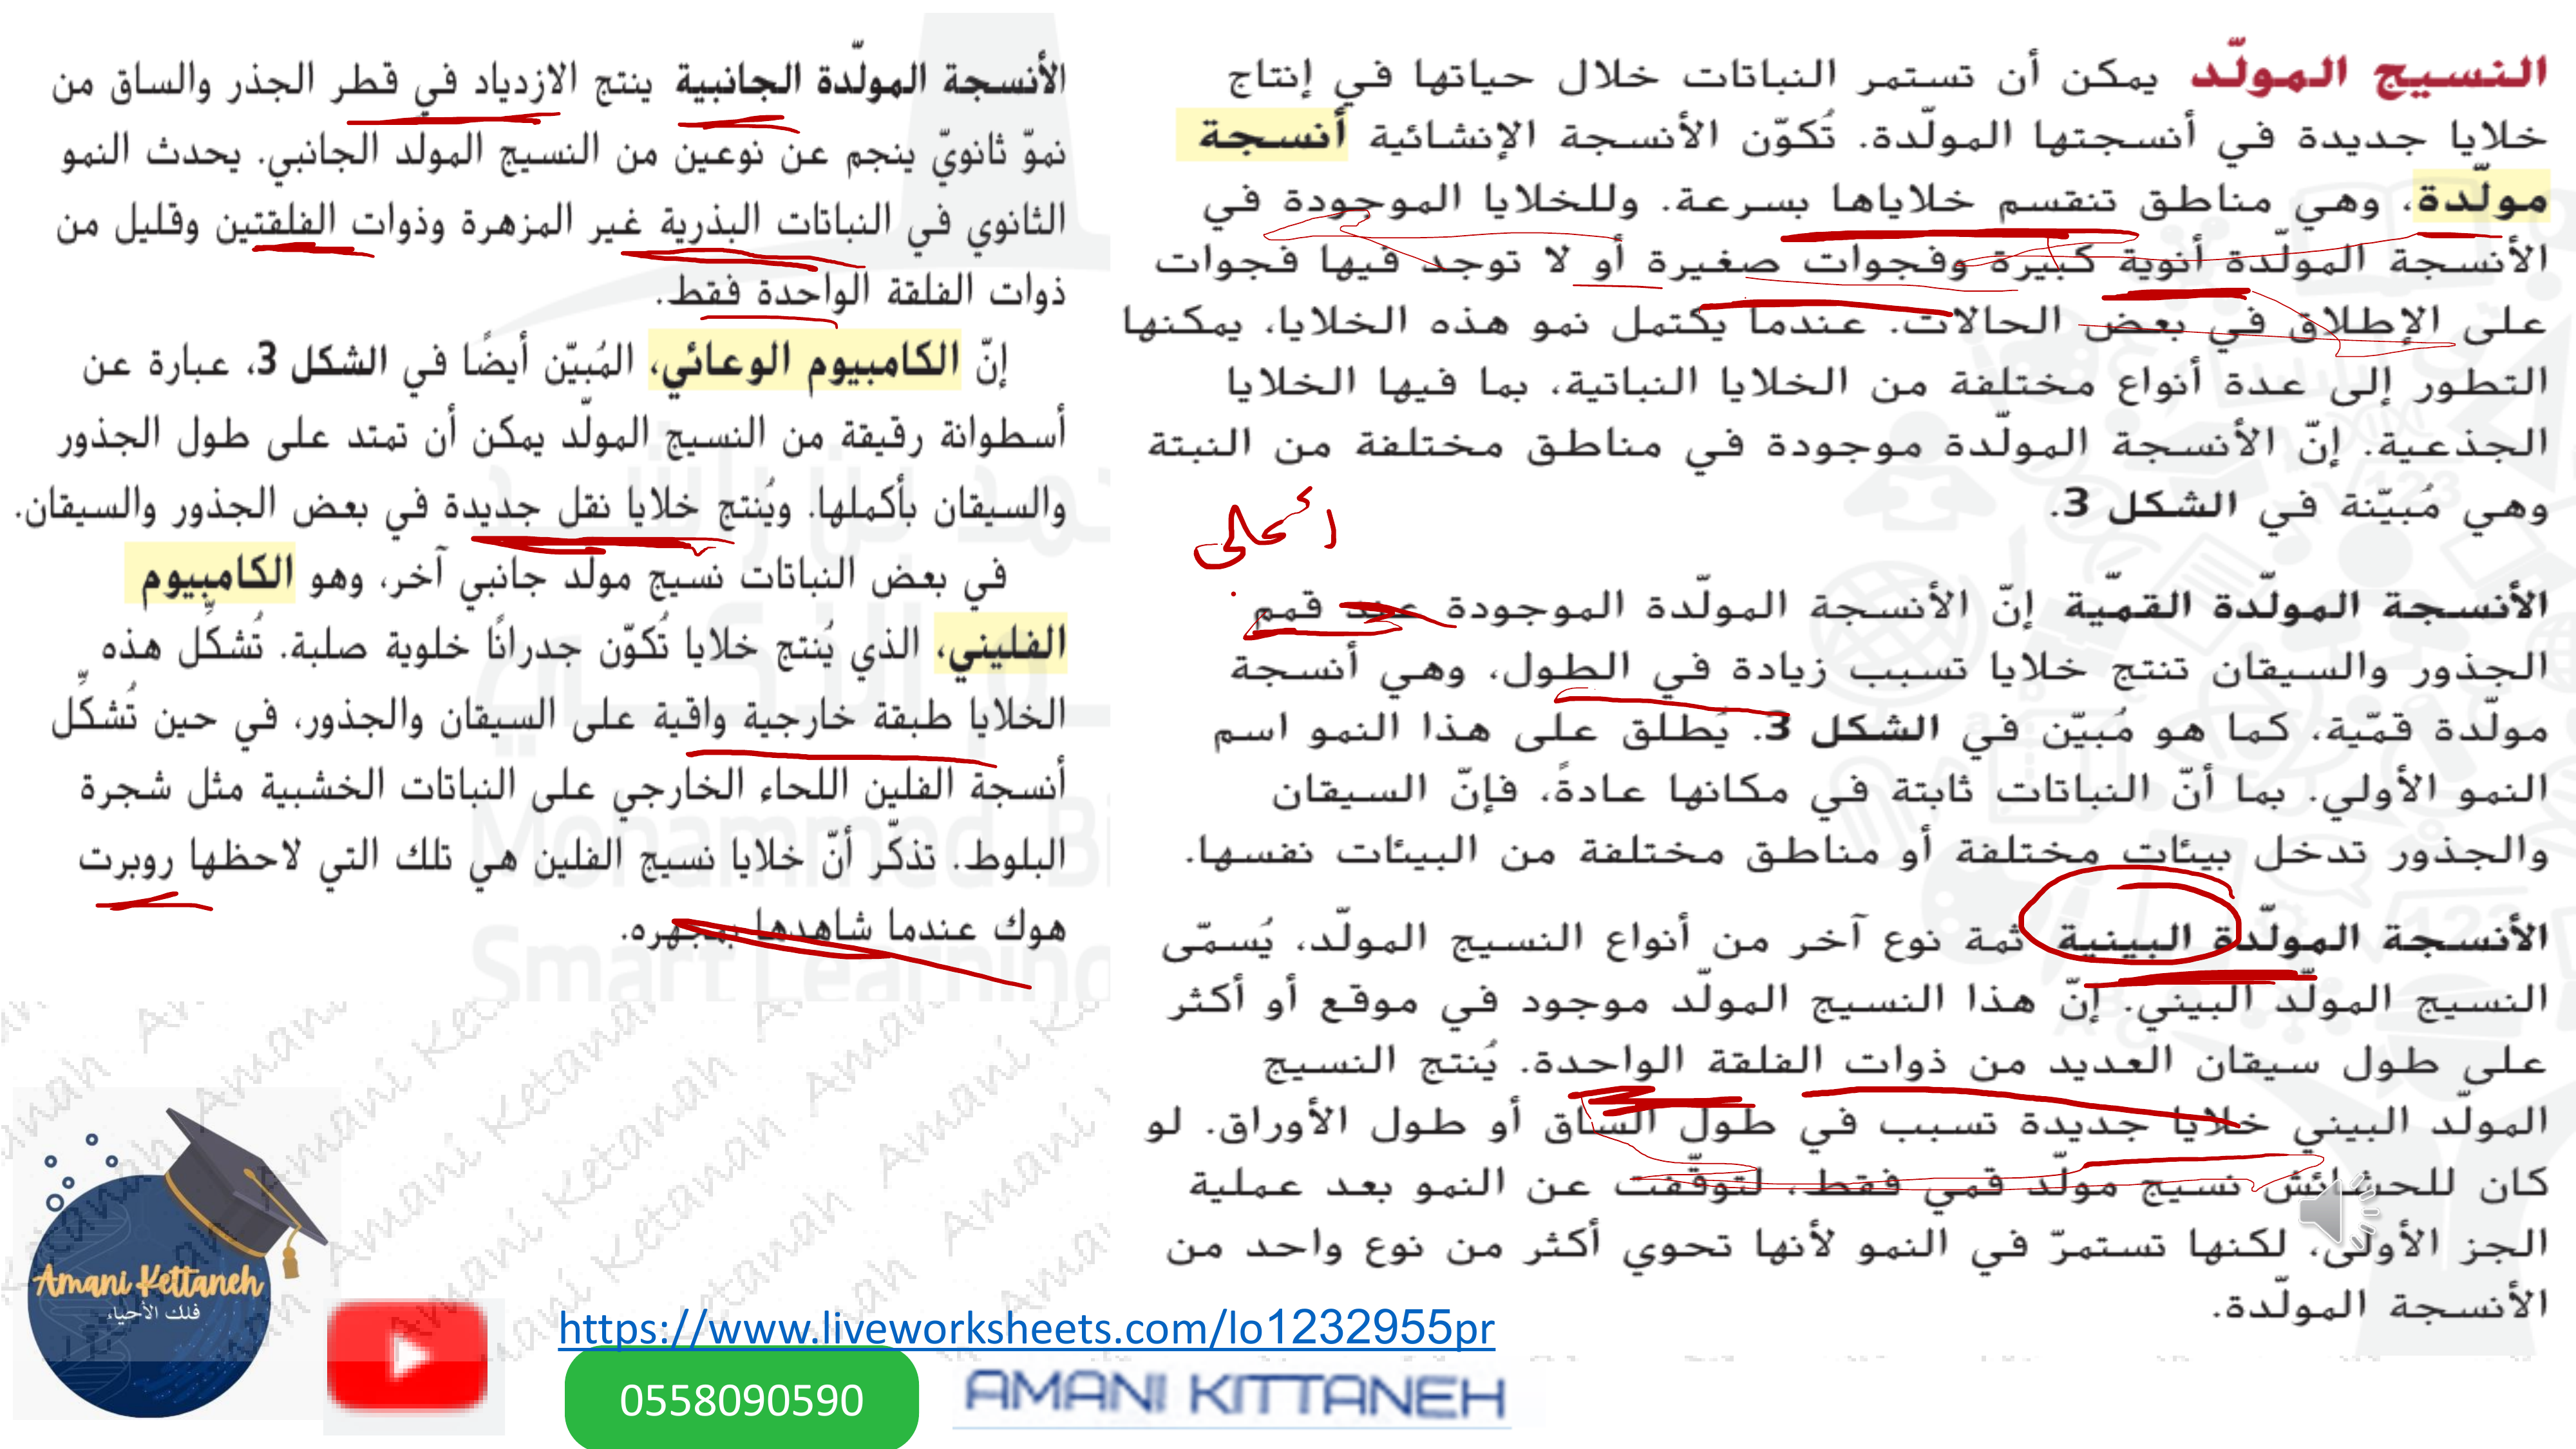 النسيج المولّد يمكن أن تستمر النباتات خلال حياتها في إنتاج
خلايا جديدة في أنسجتها المولّدة. تُكوّن الأنسجة الإنشائية أنسجة
مولّدة، وهي مناطق تنقسم خلاياها بسرعة. وللخلايا الموجودة في
الأنسجة المولّدة أنوية كبيرة وفجوات صغيرة أو لا توجد فيها فجوات
على الإطلاق في بعض الحالات. عندما يكتمل نمو هذه الخلايا، يمكنها
التطور إلى عدة أنواع مختلفة من الخلايا النباتية، بما فيها الخلايا
الجذعية. إنّ الأنسجة المولّدة موجودة في مناطق مختلفة من النبتة
وهي مُبيّنة في الشكل 3.
الأنسجة المولّدة القمّية إنّ الأنسجة المولّدة الموجودة عند قمم
الجذور والسيقان تنتج خلايا تسبب زيادة في الطول، وهي أنسجة
مولّدة قمّية، كما هو مُبيّن في الشكل 3. يُطلق على هذا النمو اسم
النمو الأولي. بما أنّ النباتات ثابتة في مكانها عادةً، فإنّ السيقان
والجذور تدخل بيئات مختلفة أو مناطق مختلفة من البيئات نفسها.
الأنسجة المولّدة البينية ثمة نوع آخر من أنواع النسيج المولّد، يُسمّى
النسيج المولّد البيني. إنّ هذا النسيج المولّد موجود في موقع أو أكثر
على طول سيقان العديد من ذوات الفلقة الواحدة. يُنتج النسيج
المولّد البيني خلايا جديدة تسبب في طول الساق أو طول الأوراق. لو
كان للحشائش نسيج مولّد قمي فقط، لتوقّفت عن النمو بعد عملية
الجز الأولى، لكنها تستمرّ في النمو لأنها تحوي أكثر من نوع واحد من
الأنسجة المولّدة.
الأنسجة المولّدة الجانبية ينتج الازدياد في قطر الجذر والساق من
نموّ ثانويّ ينجم عن نوعين من النسيج المولّد الجانبي. يحدث النمو
الثانوي في النباتات البذرية غير المزهرة وذوات الفلقتين وقليل من
ذوات الفلقة الواحدة فقط.
إنّ الكامبيوم الوعائي، المُبيّن أيضًا في الشكل 3، عبارة عن
أسطوانة رقيقة من النسيج المولّد يمكن أن تمتد على طول الجذور
والسيقان بأكملها. ويُنتج خلايا نقل جديدة في بعض الجذور والسيقان.
في بعض النباتات نسيج مولّد جانبي آخر، وهو الكامبيوم
الفليني، الذي يُنتج خلايا تُكوّن جدرانًا خلوية صلبة. تُشكِّل هذه
الخلايا طبقة خارجية واقية على السيقان والجذور، في حين تُشكِّل
أنسجة الفلين اللحاء الخارجي على النباتات الخشبية مثل شجرة
البلوط. تذكّر أنّ خلايا نسيج الفلين هي تلك التي لاحظها روبرت
هوك عندما شاهدها بمجهره.
Amani Kettaneh
فلك الأحياء
https://www.liveworksheets.com/lo1232955pr
0558090590
AMANI KITTANEH